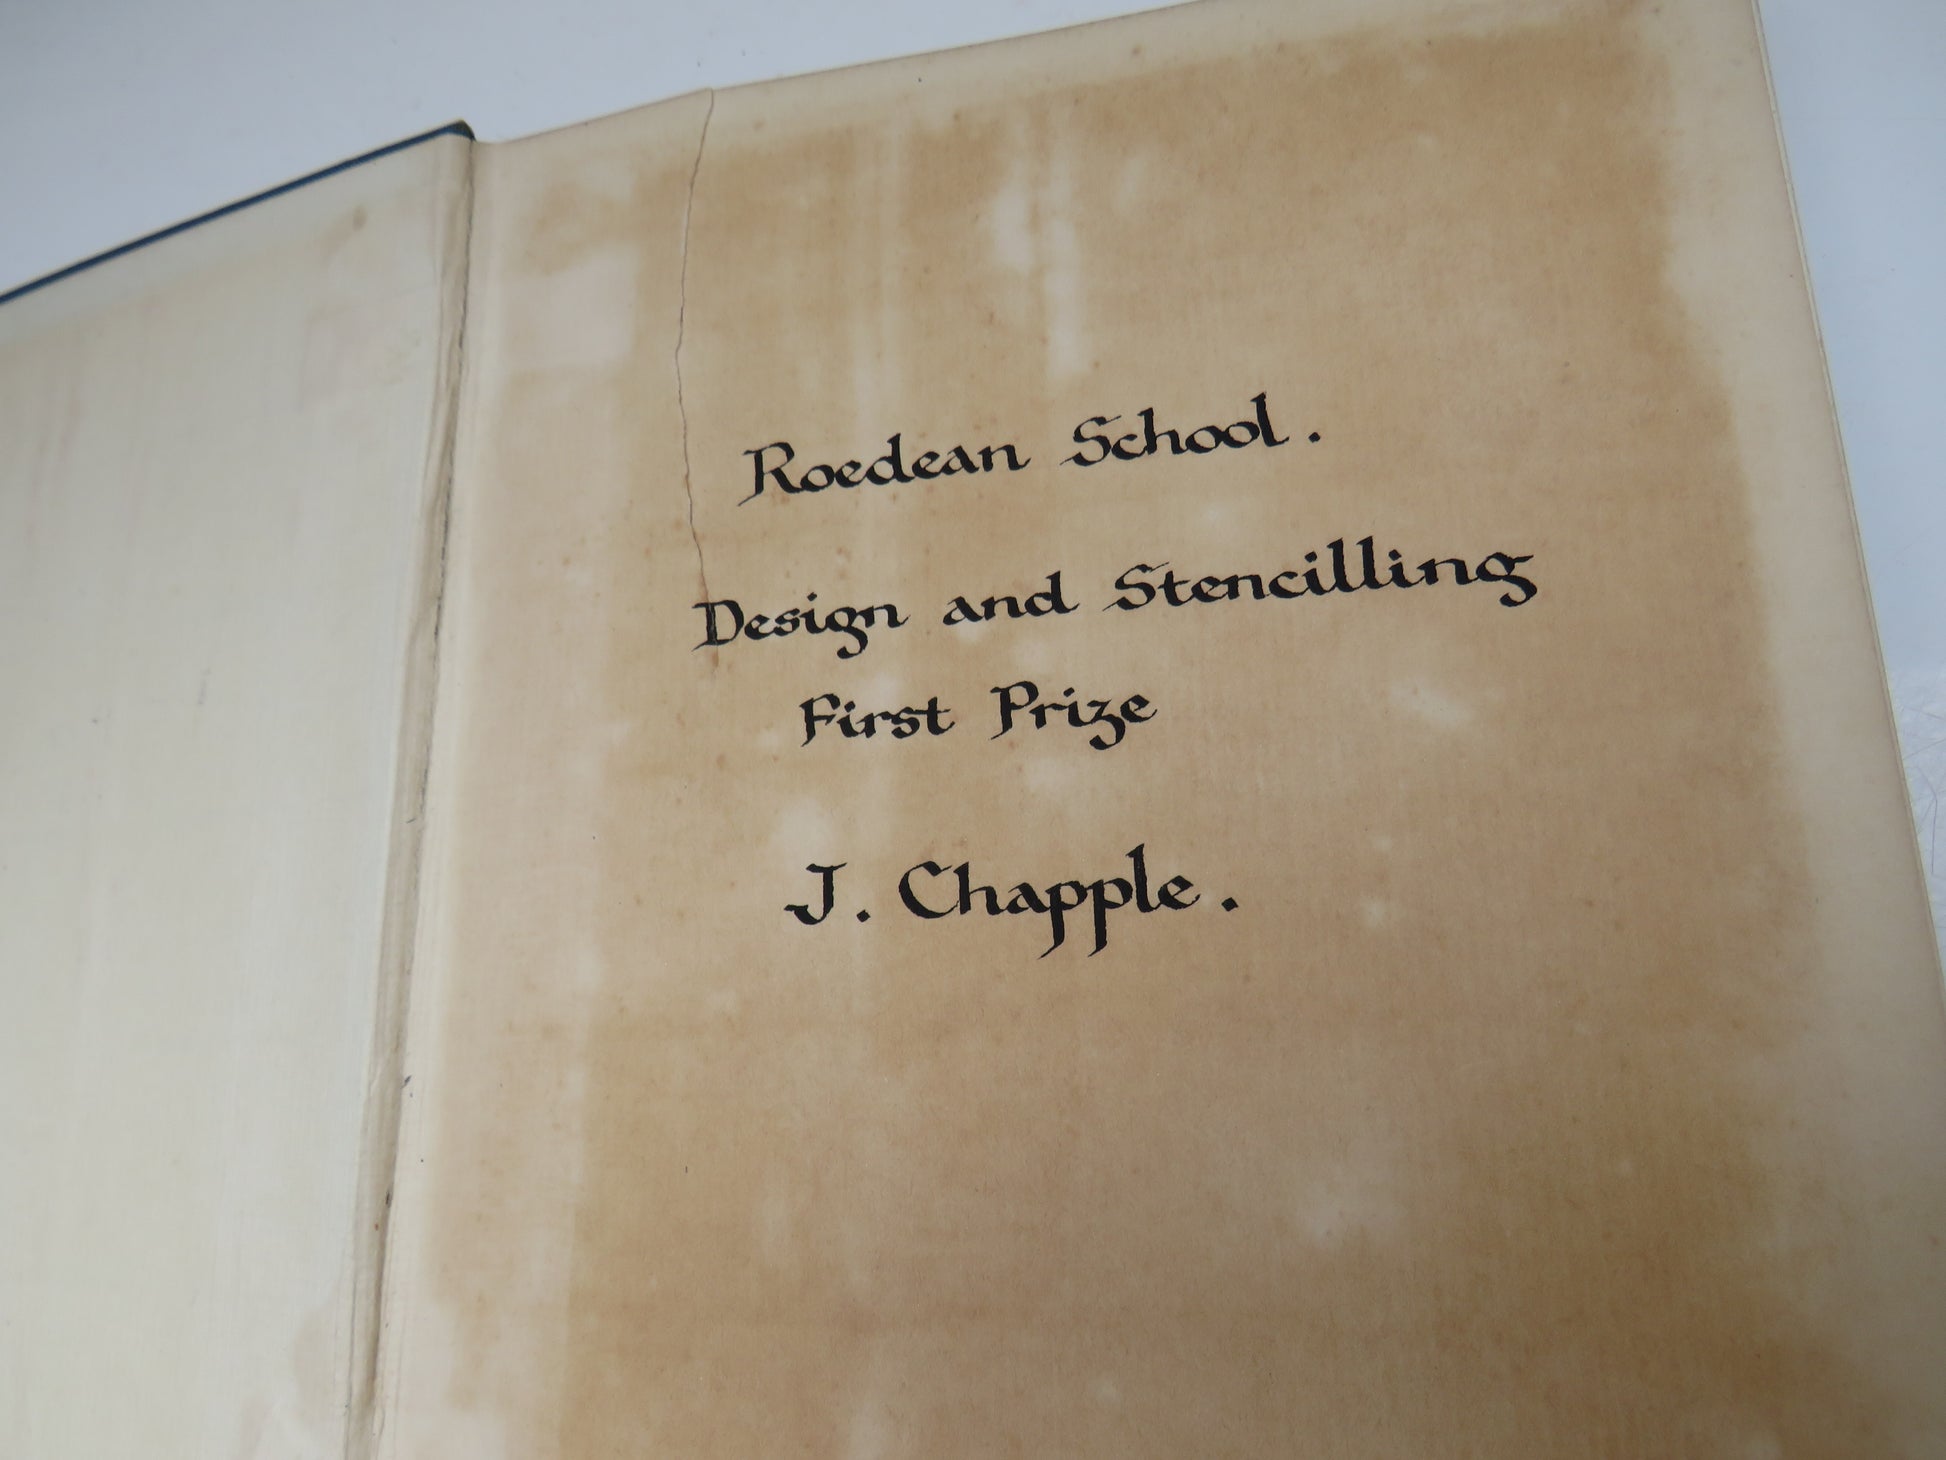 Roedean School.
Design and Stencilling
First Prize
J. Chapple.